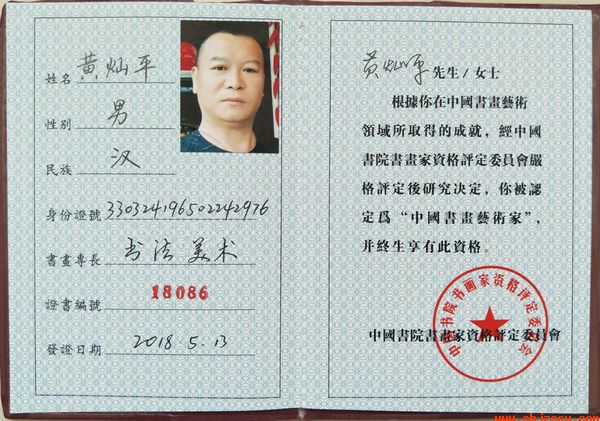 姓名 黄灿平
性别 男
民族 汉
身份證號 330324196502242976
書畫專長 书法 美术
證書編號 18086
發證日期 2018.5.13
黄灿平 先生/女士
根據你在中國書畫藝術
領域所取得的成就，經中國
書院書畫家資格評定委員會嚴
格評定後研究決定，你被認
定爲“中國書畫藝術家”，
并終生享有此資格。
中國書院書畫家資格評定委員會
中国书院书画家资格评定委员会